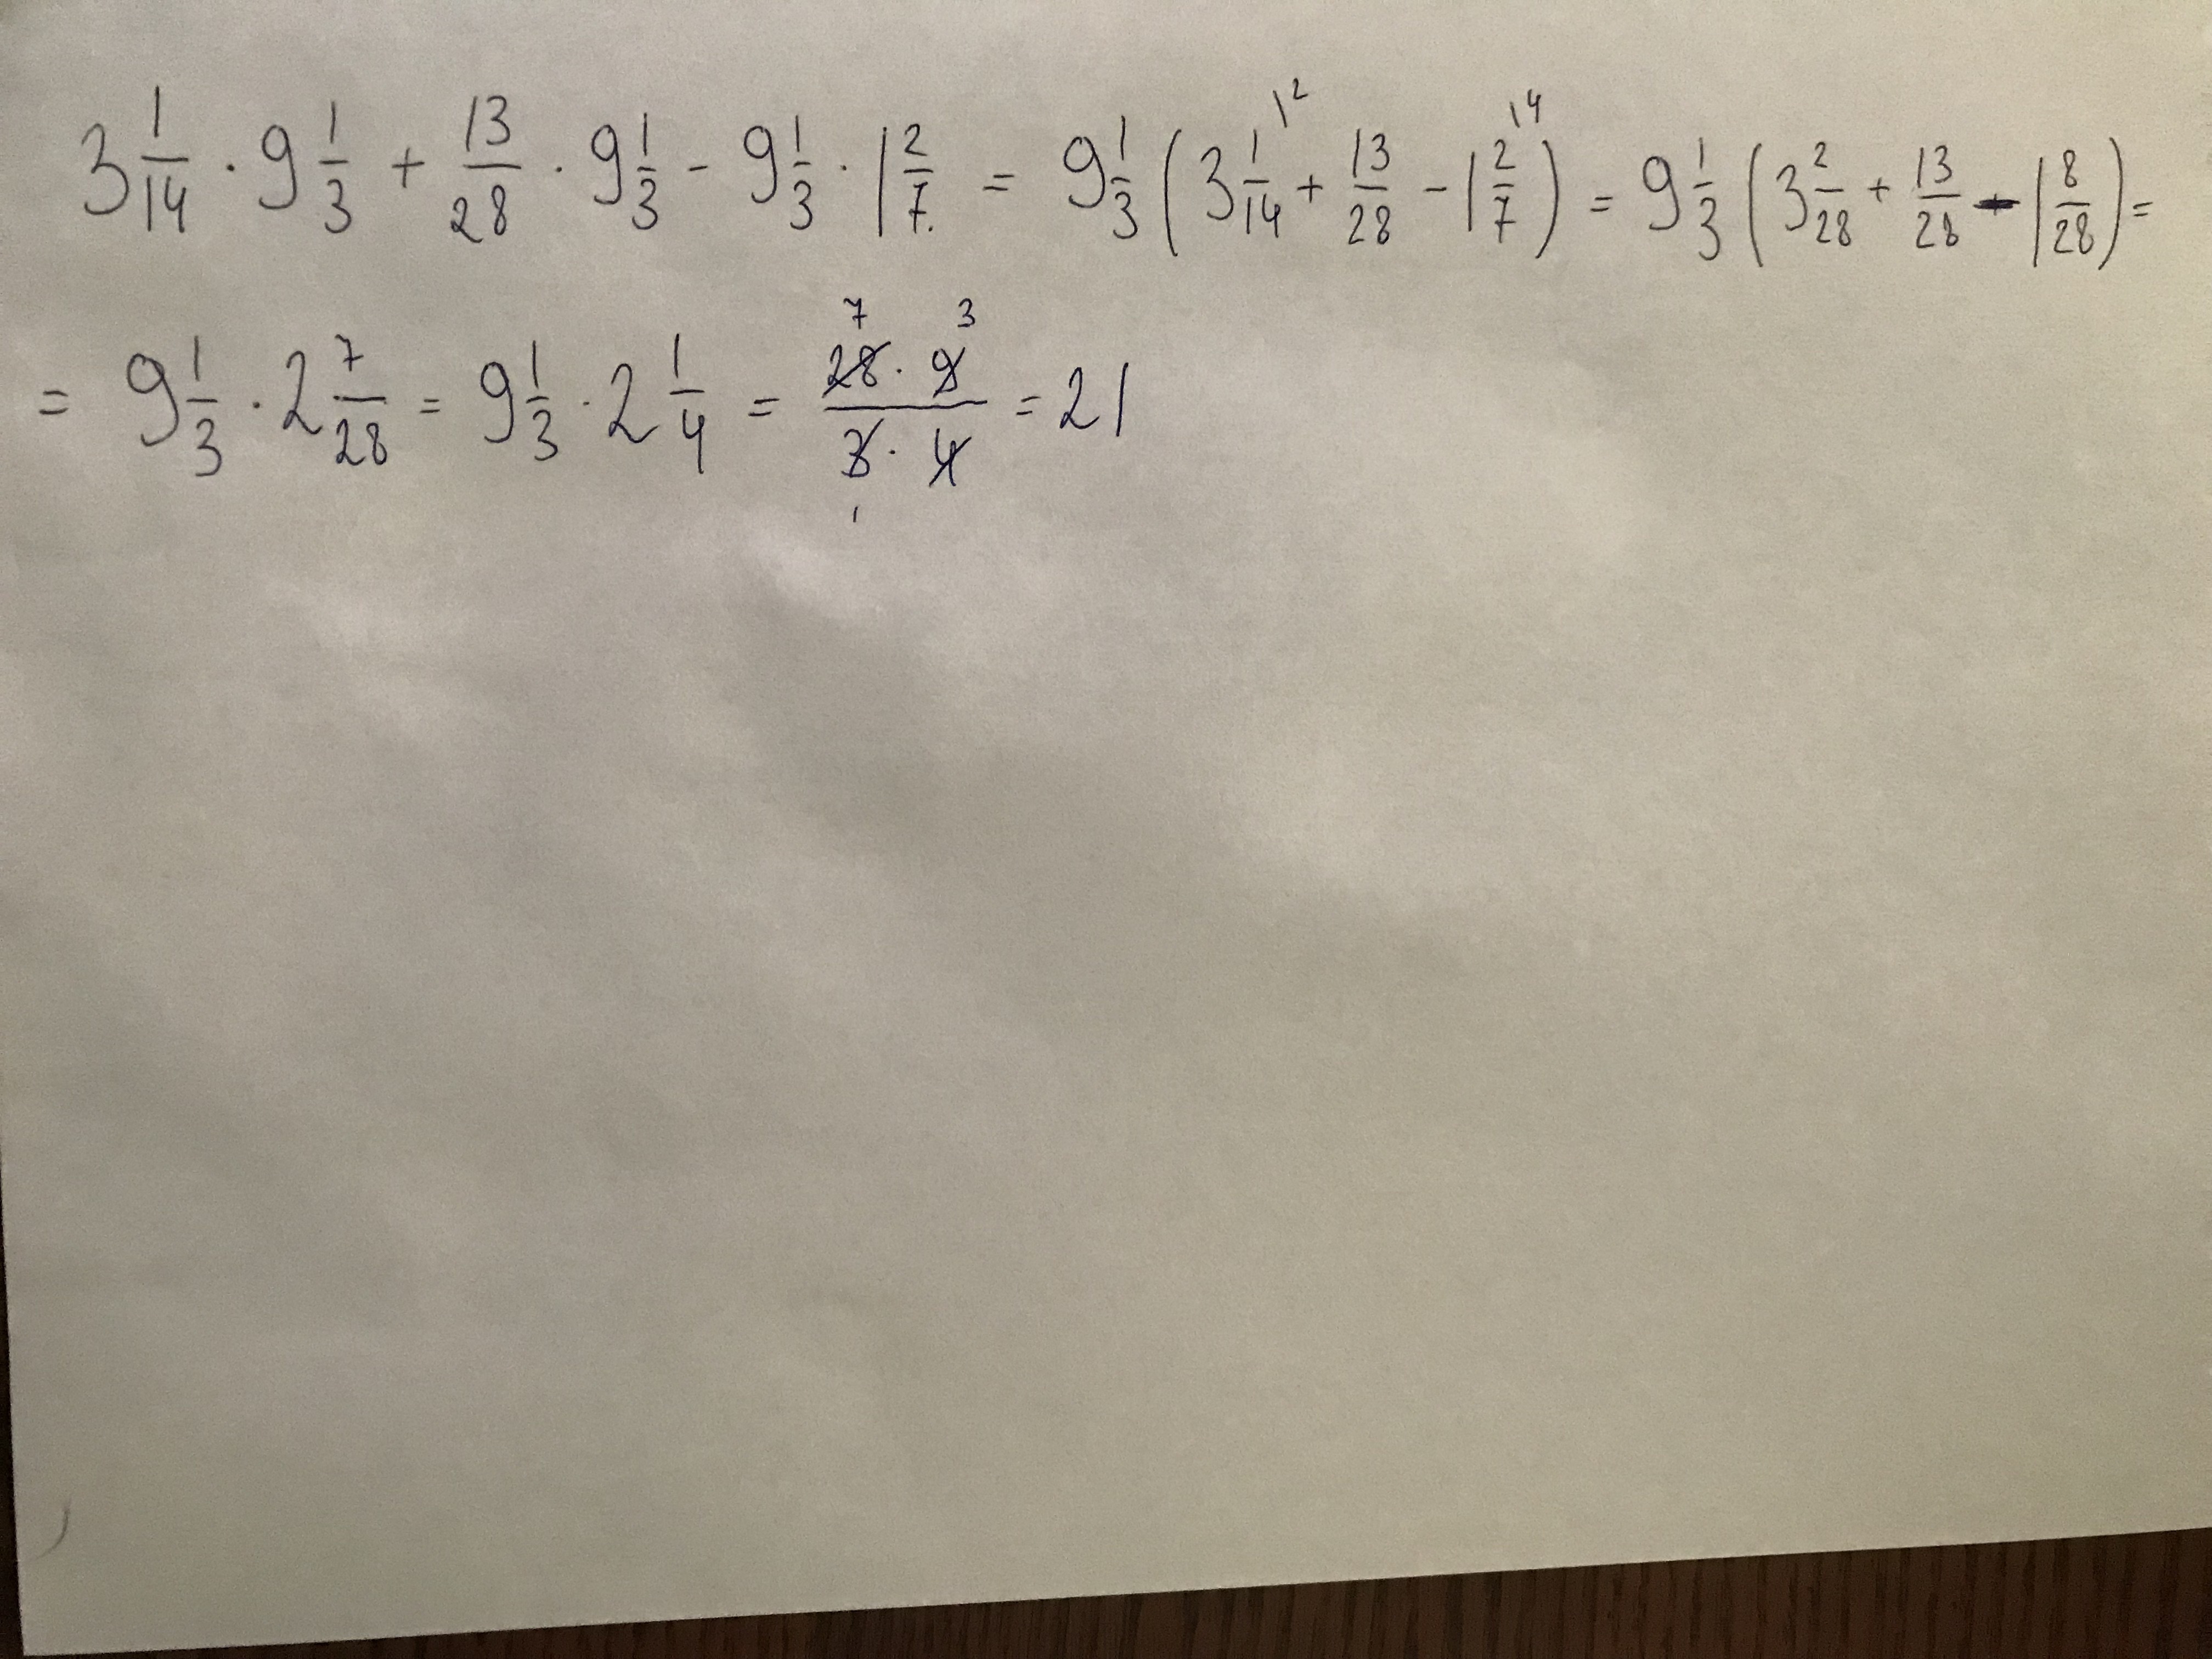 3 1/14 · 9 1/3 + 13/28 · 9 1/3 - 9 1/3 · 1 2/7 = 9 1/3 (3 1/14 \² + 13/28 - 1 2/7 \⁴) = 9 1/3 (3 2/28 + 13/28 - 1 8/28) =
= 9 1/3 · 2 7/28 = 9 1/3 · 2 1/4 = (28 7 · 9 3)/(3 1 · 4) = 21